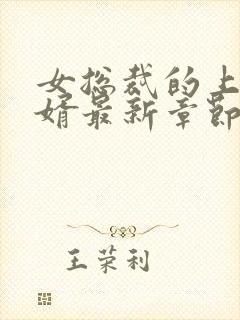 女总裁的上
婿最新章节
王荣利